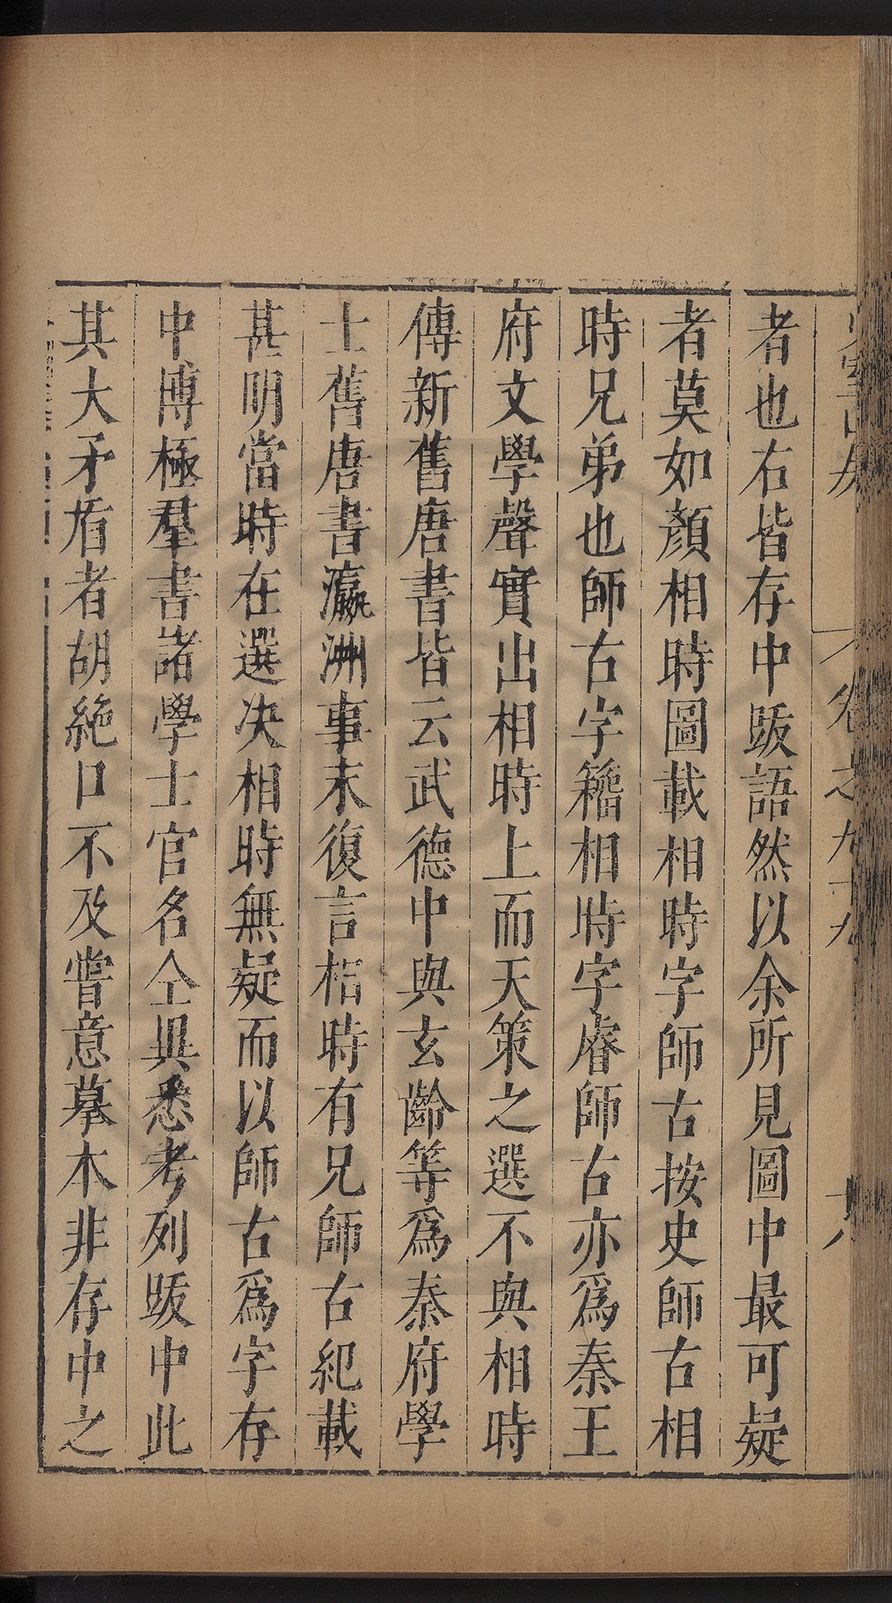 卷之九十九
者也右皆存中䟦語然以余所見圖中最可疑
者莫如顏相時圖載相時字師古按史師古相
時兄弟也師古字籀相時字睿師古亦爲秦王
府文學聲實出相時上而天策之選不與相時
傳新舊唐書皆云武德中與玄齡等爲秦府學
士舊唐書瀛洲事末復言相時有兄師古紀載
甚明當時在選决相時無疑而以師古爲字存
中博極羣書諸學士官名仝異悉考列䟦中此
其大矛盾者胡絶口不及嘗意摹本非存中之